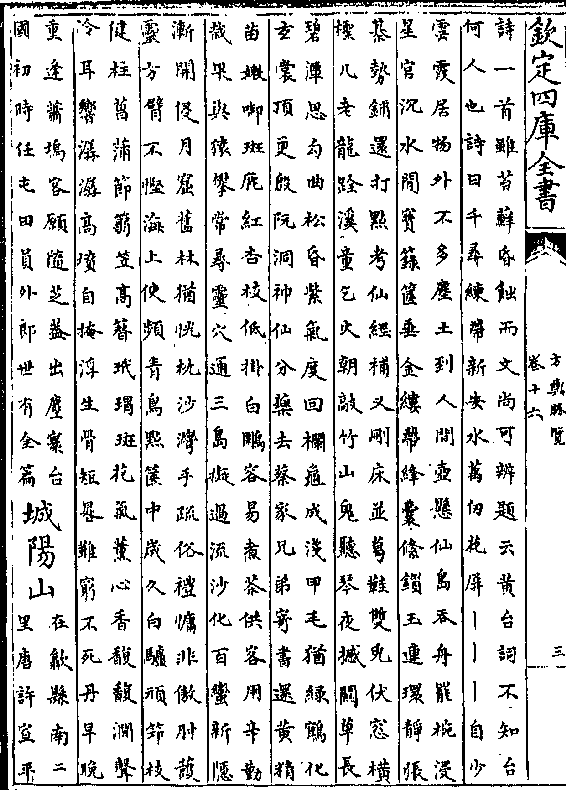 欽定四庫全書
方輿勝覽
卷十六
三
詩一首雖苔蘚昏蝕而文尚可辨題云黄台詞不知台
何人也詩曰千尋練帶新安水萬仞花屏丨丨丨自少
雲霞居物外不多塵土到人間壺懸仙島吞舟罷椀浸
星官沉水閒寳籙篋垂金縷帶絳囊偹鎖玉連環靜張
棊勢鋪還打㸃考仙經補又刪床並葛鞋雙兎伏窓横
檏几老龍跧溪童乞火朝敲竹山鬼聽琴夜撼關草長
碧潭思句曲松昏紫氣度回欄龜成淺甲毛猶緑鶴化
玄裳頂更殷阮洞神仙分藥去蔡家兄弟寄書還黄精
苗嫩啣斑鹿紅杏枝低掛白鷴容易煮茶供客用辛勤
栽果與猿攀常尋靈穴通三島擬過流沙化百蠻新隠
漸開侵月窟舊林猶恍枕沙灣手疏俗禮慵非傲肘䕶
靈方臂不慳海上使頻青鳥㸃篋中歲久白驢頑節枝
健柱菖蒲節蒻笠高簪玳瑁斑花氣薰心香馥馥澗聲
泠耳響潺潺高墳自掩浮生骨短晷難窮不死丹早晚
重逢蕭塢客願隨芝蓋出塵寰台
國初時任屯田員外郎世有全篇
城陽山
在歙縣南二
里唐許宣平